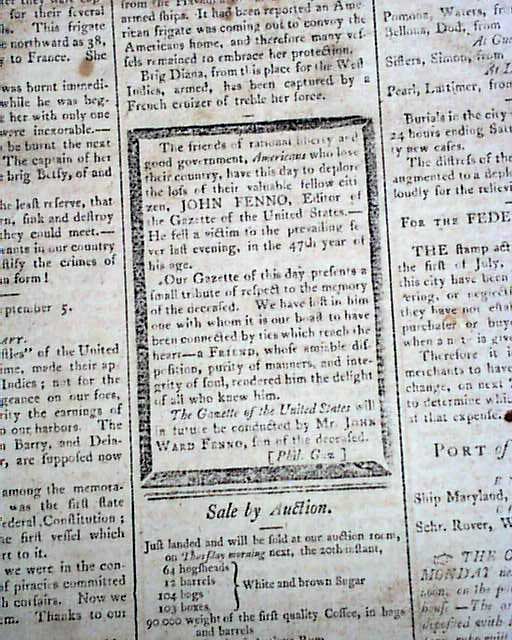 for their several
This frigate
northward as 38,
to France. She
was burnt immedi-
while he was beg-
her with only one
were inexorable.—
be burnt the next
The captain of her
brig Betsy, of and
the least reserve, that
sink and destroy
they could meet.—
in our country
the crimes of
form!
5.
of the United
made their ap
Indies; not for the
on our foes,
the earnings of
our harbors. The
Barry, and Dela-
are supposed now
among the memora-
was the first state
Federal Constitution;
first vessel which
to it.
we were in the con-
of piracies committed
corsairs. Now we
Thanks to our
armed ships. It had been reported an Ame-
rican frigate was coming out to convoy the
Americans home, and therefore many ves-
sels remained to embrace her protection.
Brig Diana, from this place for the West
Indies, armed, has been captured by a
French cruizer of treble her force.
The friends of rational liberty and
good government, Americans who love
their country, have this day to deplore
the loss of their valuable fellow citi
zen, JOHN FENNO, Editor of
the Gazette of the United States.—
He fell a victim to the prevailing fe
ver last evening, in the 47th year of
his age.
Our Gazette of this day presents a
small tribute of respect to the memory
of the deceased. We have lost in him
one with whom it is our boast to have
been connected by ties which reach the
heart—a FRIEND, whose amiable dis-
position, purity of manners, and inte-
grity of soul, rendered him the delight
of all who knew him.
The Gazette of the United States will
in future be conducted by Mr. JOHN
WARD FENNO, son of the deceased.
[Phil. Gaz.]
Sale by Auction.
Just landed and will be sold at our auction room,
on Thursday morning next, the 20th instant,
64 hogsheads
12 barrels
104 bags
103 boxes
White and brown Sugar
90,000 weight of the first quality Coffee, in bags
and barrels
Pomona, Waters,
Bellona, Dod, from
Sisters, Simon, from
Pearl, Lattimer, from
Burials in the city
24 hours ending
new cases.
The distress of the
augmented to a
loudly for the
FOR THE
THE stamp act
the first of July,
this city have been
or
they have not
purchaser or
when a is
Therefore it
merchants to have
change, on next
to determine
at that expence.
PORT of
Ship Maryland,
Schr. Rover,
THE
MONDAY
on the
The
with